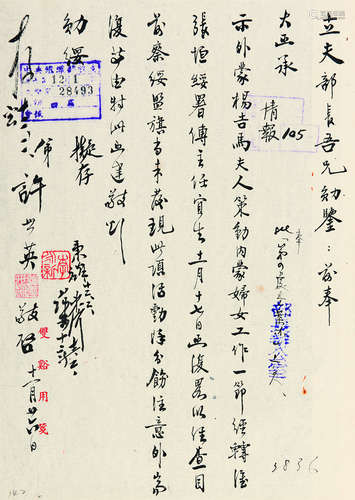 立夫部長吾兄勛鑒：前奉
大函承
示外蒙楊吉馬夫人策動內蒙婦女工作一節經轉准
張垣綏署傅主任宜生十一月十七日函復畧以經查目
前察綏盟旗尚未發現此項活動除分飭注意外
復等由特此函達敬頌
勛綏
弟許世英
敬啟 十一月廿六日
擬存
情報
105
12 1
28493
雙谿用箋
3836